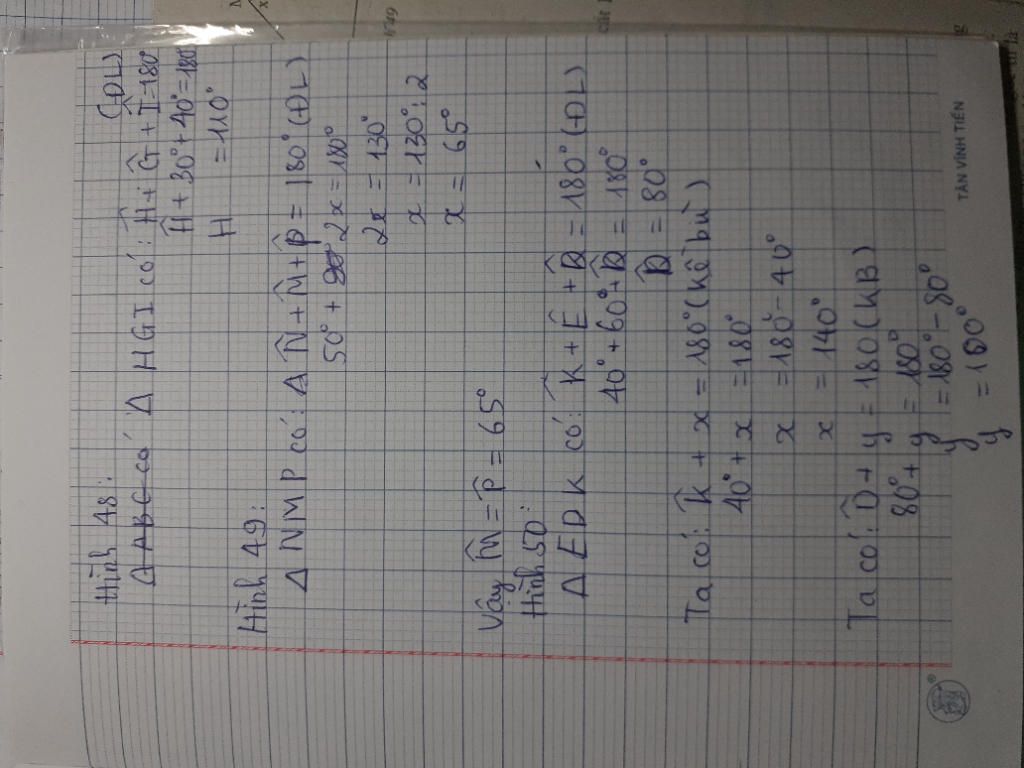 Hình 48:
Δ ABC có Δ HGI có: Ĥ + Ĝ + Î = 180° (ĐL)
Ĥ + 30° + 40° = 180°
H = 110°
Hình 49:
Δ NMP có: Δ N̂ + M̂ + P̂ = 180° (ĐL)
50° + 2x = 180°
2x = 130°
x = 130° : 2
x = 65°
Vậy M̂ = P̂ = 65°
Hình 50:
Δ EDK có: K̂ + Ê + D̂ = 180° (ĐL)
40° + 60° + D̂ = 180°
D̂ = 80°
Ta có: K̂ + x = 180° (kề bù)
40° + x = 180°
x = 180° - 40°
x = 140°
Ta có: D̂ + y = 180 (KB)
80° + y = 180°
y = 180° - 80°
y = 100°
TÂN VĨNH TIẾN